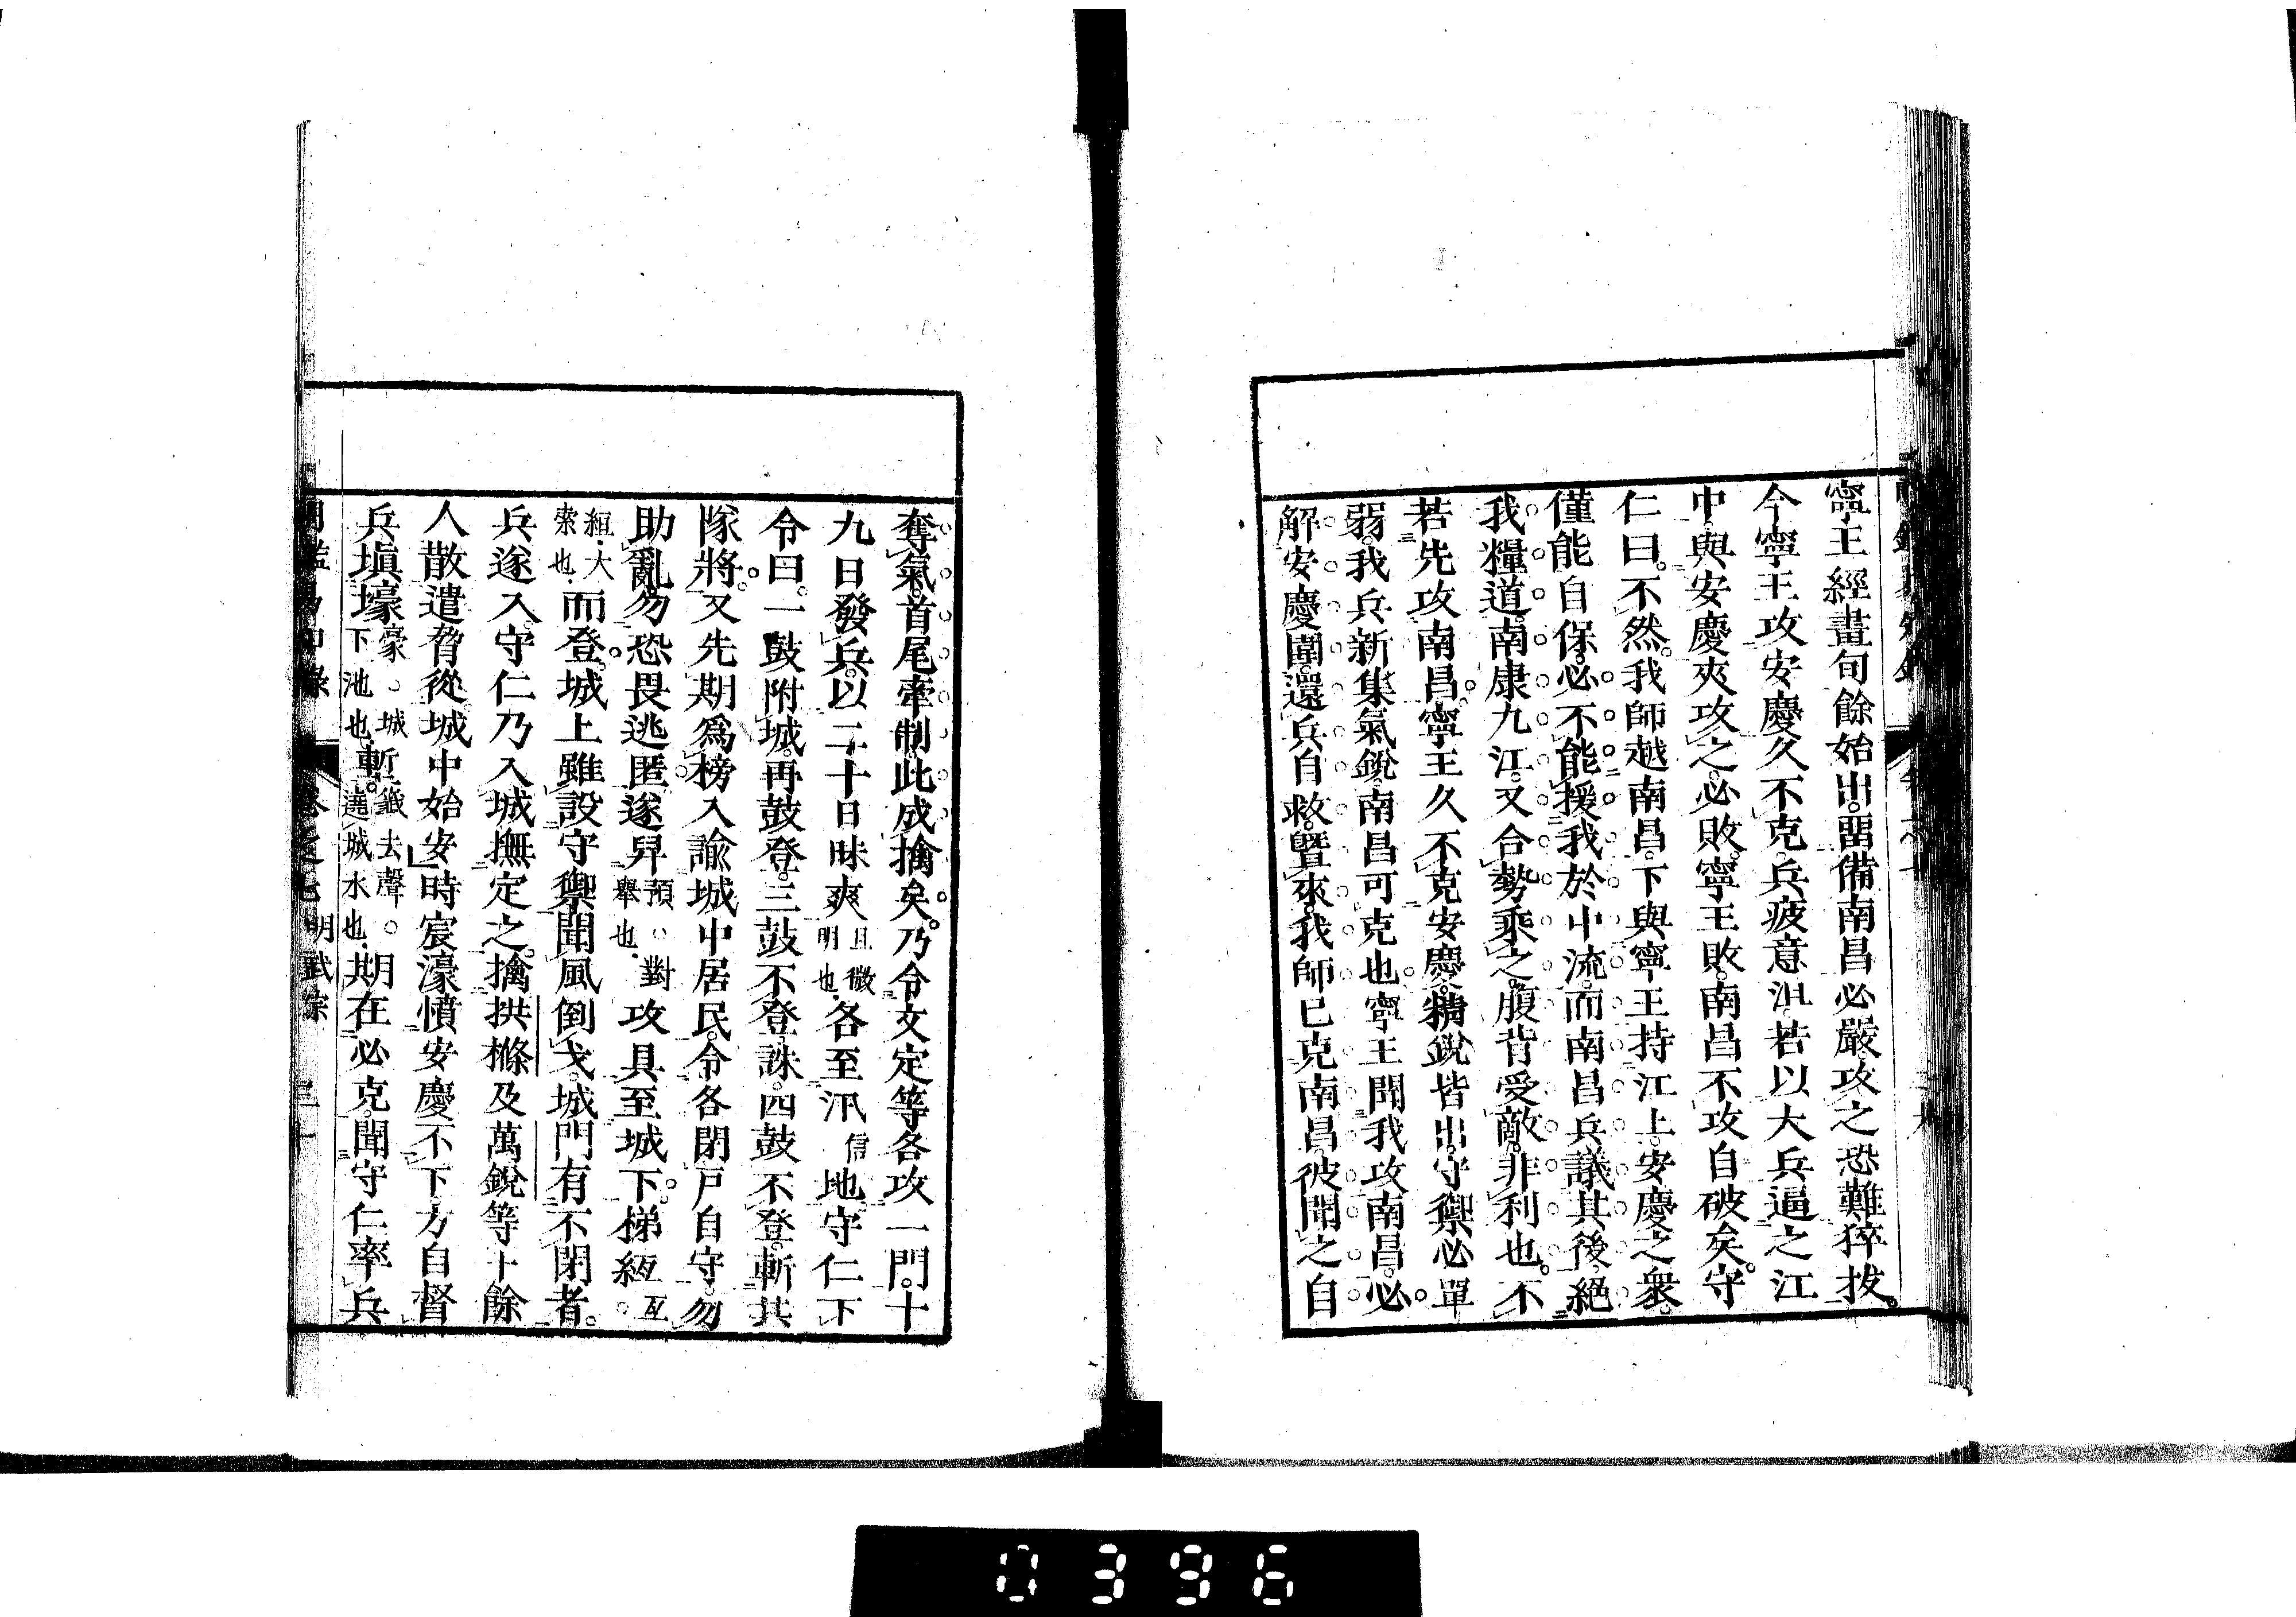 寧王經畫旬餘始出。畱備南昌必嚴攻之恐難猝拔。
今寧王攻安慶久不克兵疲意沮若以大兵逼之江
中與安慶夾攻之必敗寧王敗南昌不攻自破矣。守
仁曰。不然我師越南昌下與寧王持江上安慶之衆。
僅能自保必不能援我於中流而南昌兵議其後絕
我糧道南康九江又合勢乘之腹背受敵非利也。不
若先攻南昌。寧王久不克安慶精銳皆出守禦必單
弱。我兵新集氣銳南昌可克也寧王聞我攻南昌必
解安慶圍還兵自救曁來我師已克南昌彼聞之自
奪氣首尾牽制此成擒矣。乃令文定等各攻一門。十
九日發兵以二十日昧爽且微明也。各至汛信地守仁下
令曰。一鼓附城再鼓登三鼓不登誅四鼓不登斬其
隊將。又先期爲榜入諭城中居民令各閉戶自守勿
助亂勿恐畏逃匿遂舁預。對舉也。攻具至城下。梯縆亙互。
縆。大索也。而登。城上雖設守禦聞風倒戈城門有不閉者。
兵遂入守仁乃入城撫定之。擒拱樤及萬銳等十餘
人散遣脅從城中始安」時宸濠憤安慶不下方自督
兵塡壕豪。城下池也。塹。籤去聲。遶城水也。期在必克聞守仁率兵
卷之七 明武宗
0396